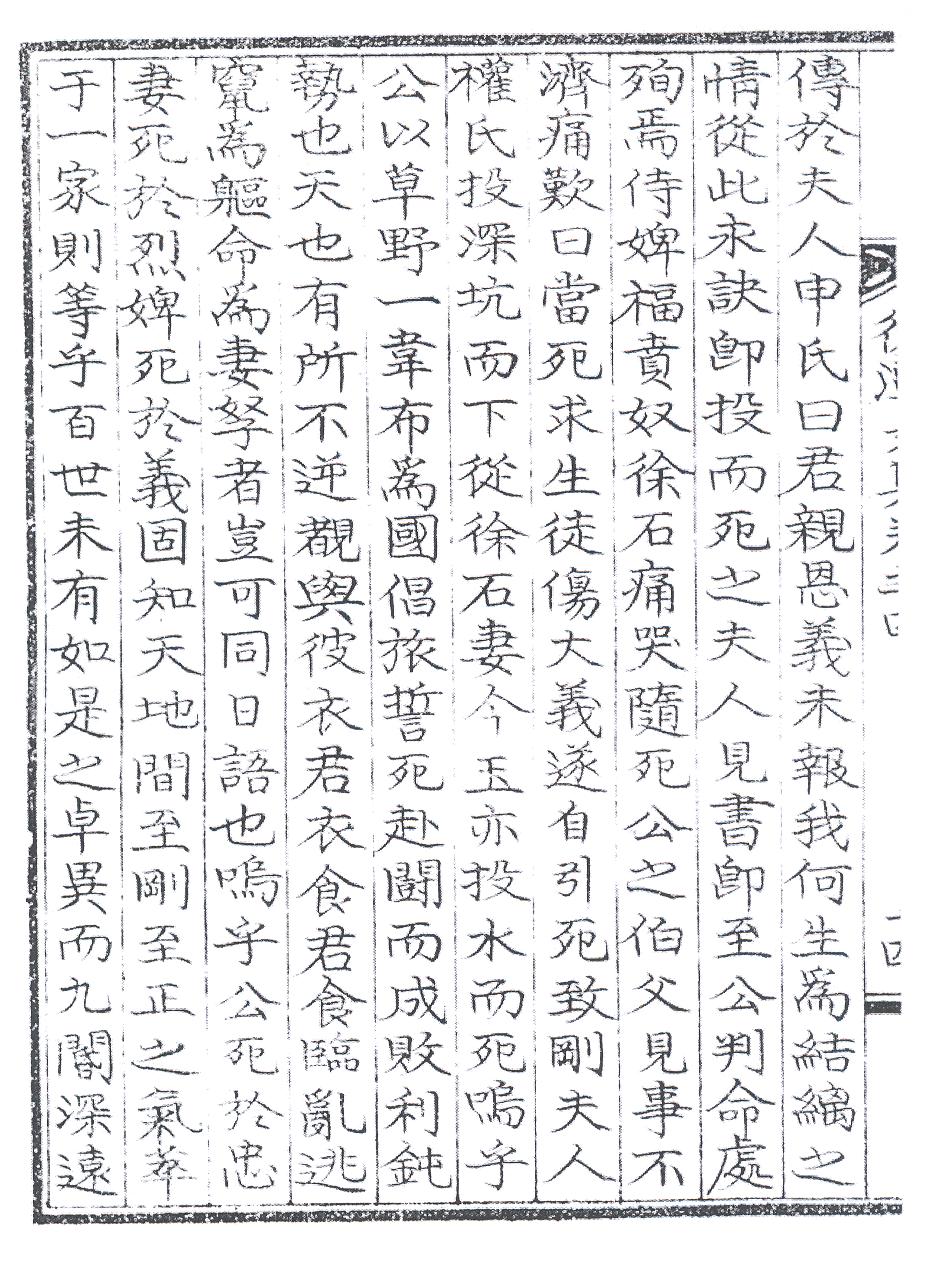 傳於夫人申氏曰君親恩義未報我何生爲結縭之
情從此永訣卽投而死之夫人見書卽至公判命處
殉焉侍婢福賁奴徐石痛哭隨死公之伯父見事不
濟痛歎曰當死求生徒傷大義遂自引死致剛夫人
權氏投深坑而下從徐石妻今玉亦投水而死嗚乎
公以草野一韋布爲國倡旅誓死赴鬪而成敗利鈍
勢也天也有所不逆覩與彼衣君衣食君食臨亂逃
竄爲軀命爲妻孥者豈可同日語也嗚乎公死於忠
妻死於烈婢死於義固知天地間至剛至正之氣萃
于一家則等乎百世未有如是之卓異而九閽深遠